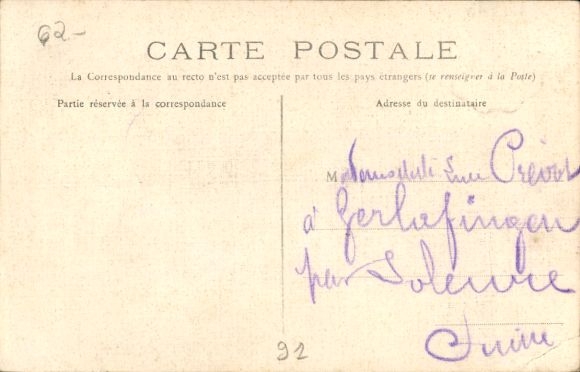 62-
CARTE POSTALE
La Correspondance au recto n'est pas acceptée par tous les pays étrangers (se renseigner à la Poste)
Partie réservée à la correspondance
Adresse du destinataire
Mademoiselle Prévot
à Gerlafingen
par Soleure
Suisse
92